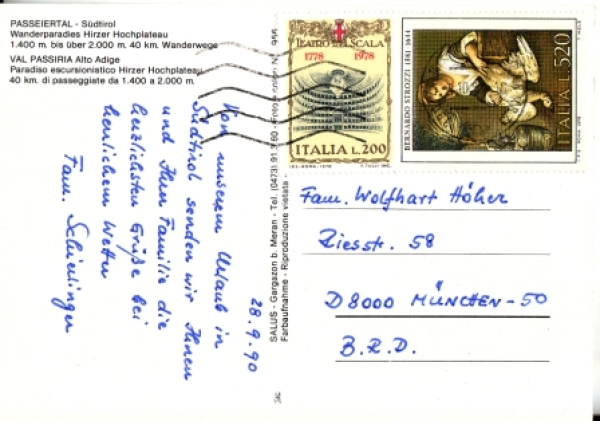 PASSEIERTAL - Südtirol
Wanderparadies Hirzer Hochplateau
1.400 m. bis über 2.000 m. 40 km. Wanderwege
VAL PASSIRIA Alto Adige
Paradiso escursionistico Hirzer Hochplateau
40 km. di passeggiate da 1.400 a 2.000 m.
28.9.90
Von unserem Urlaub in
Südtirol senden wir Ihnen
und Ihrer Familie die
herzlichsten Grüße bei
herrlichem Wetter
Fam. Schierlinger
SALUS - Gargazon b. Meran - Tel. (0473)
Farbaufnahme - Riproduzione vietata
TEATRO ALLA SCALA
1778 1978
ITALIA L.200
BERNARDO STROZZI 1581-1644
ITALIA L.520
Fam. Wolfhart Höher
Riesstr. 58
D 8000 MÜNCHEN-50
B.R.D.